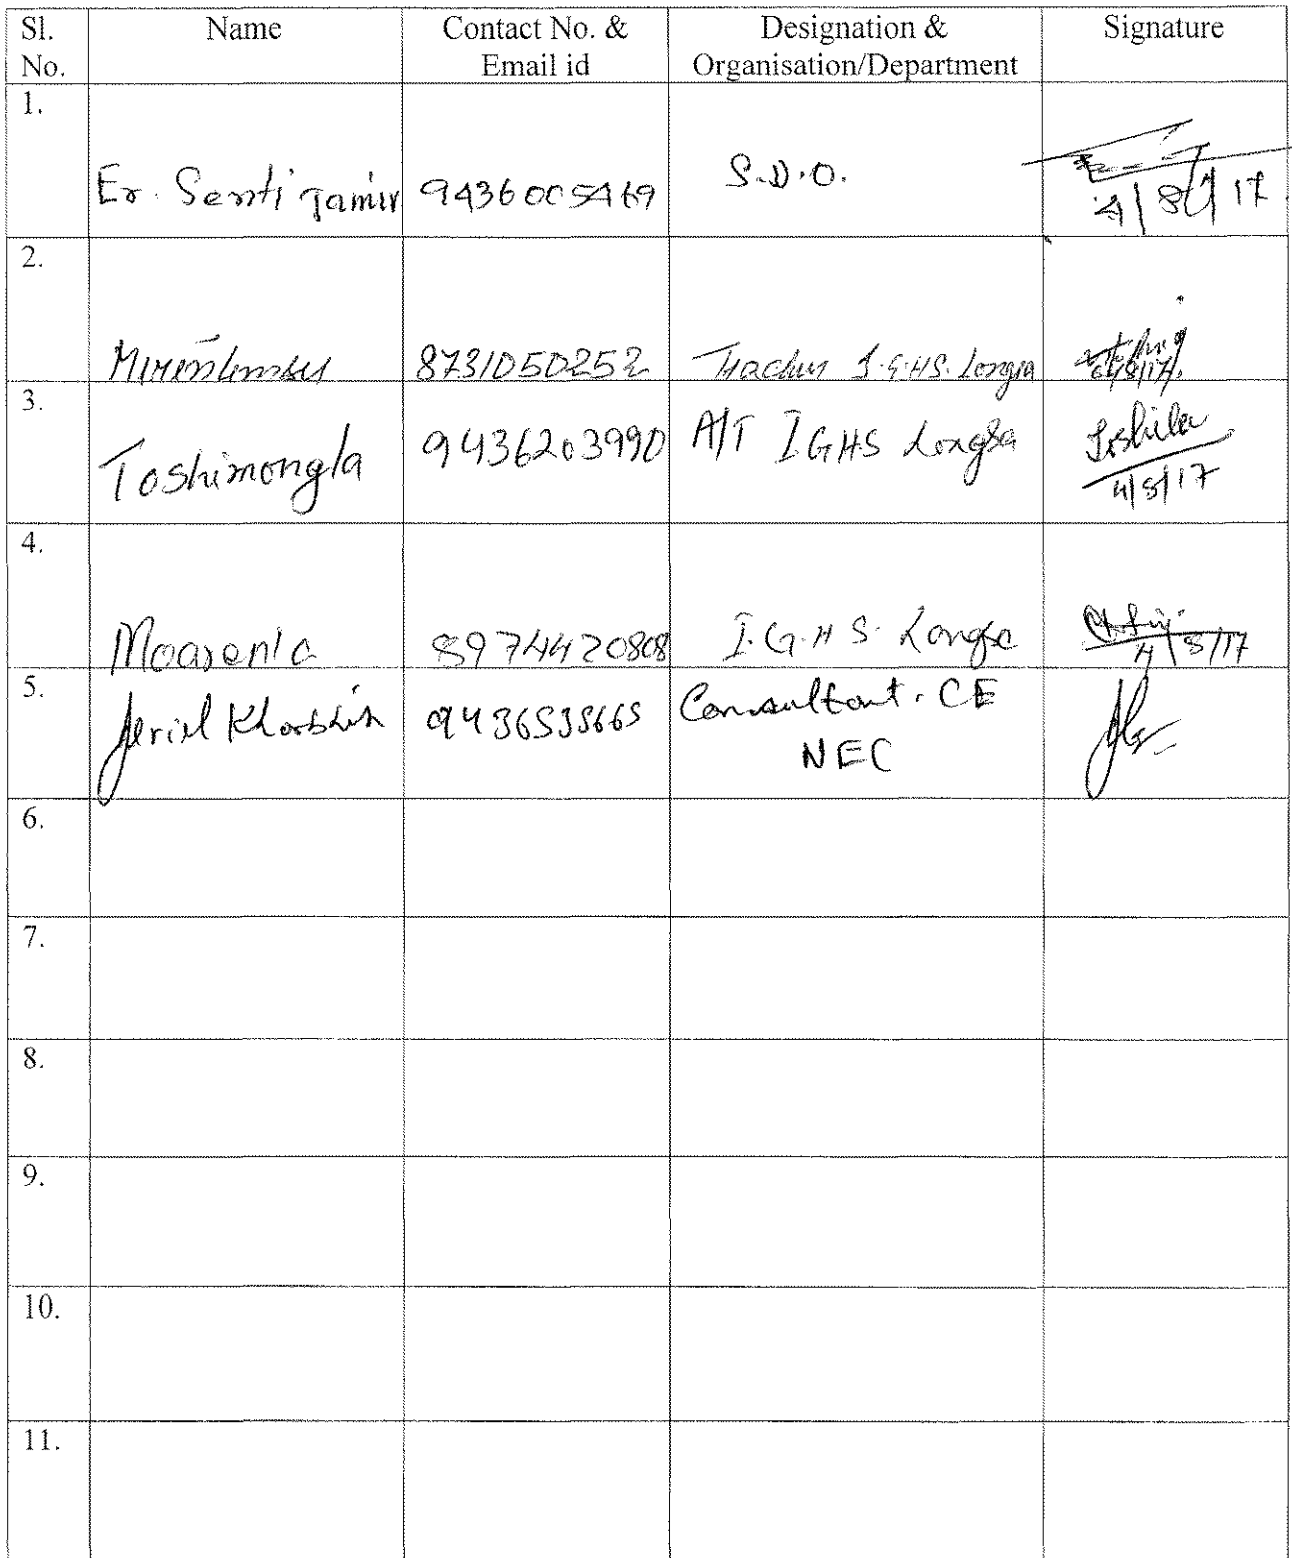 Sl. No. Name Contact No. & Email id Designation & Organisation/Department Signature
1. Er. Senti Jamir 9436005469 S.D.O. 4/8/17
2. 8731050252 Teacher I.G.H.S. Longsa 4/8/17
3. Toshimongla 9436203990 A/T IGHS Longsa Toshila 4/8/17
4. Moasenla 8974420808 I.G.H.S. Longsa 4/8/17
5. Jeriel Kharbhih 9436535665 Consultant. CE NEC
6.
7.
8.
9.
10.
11.